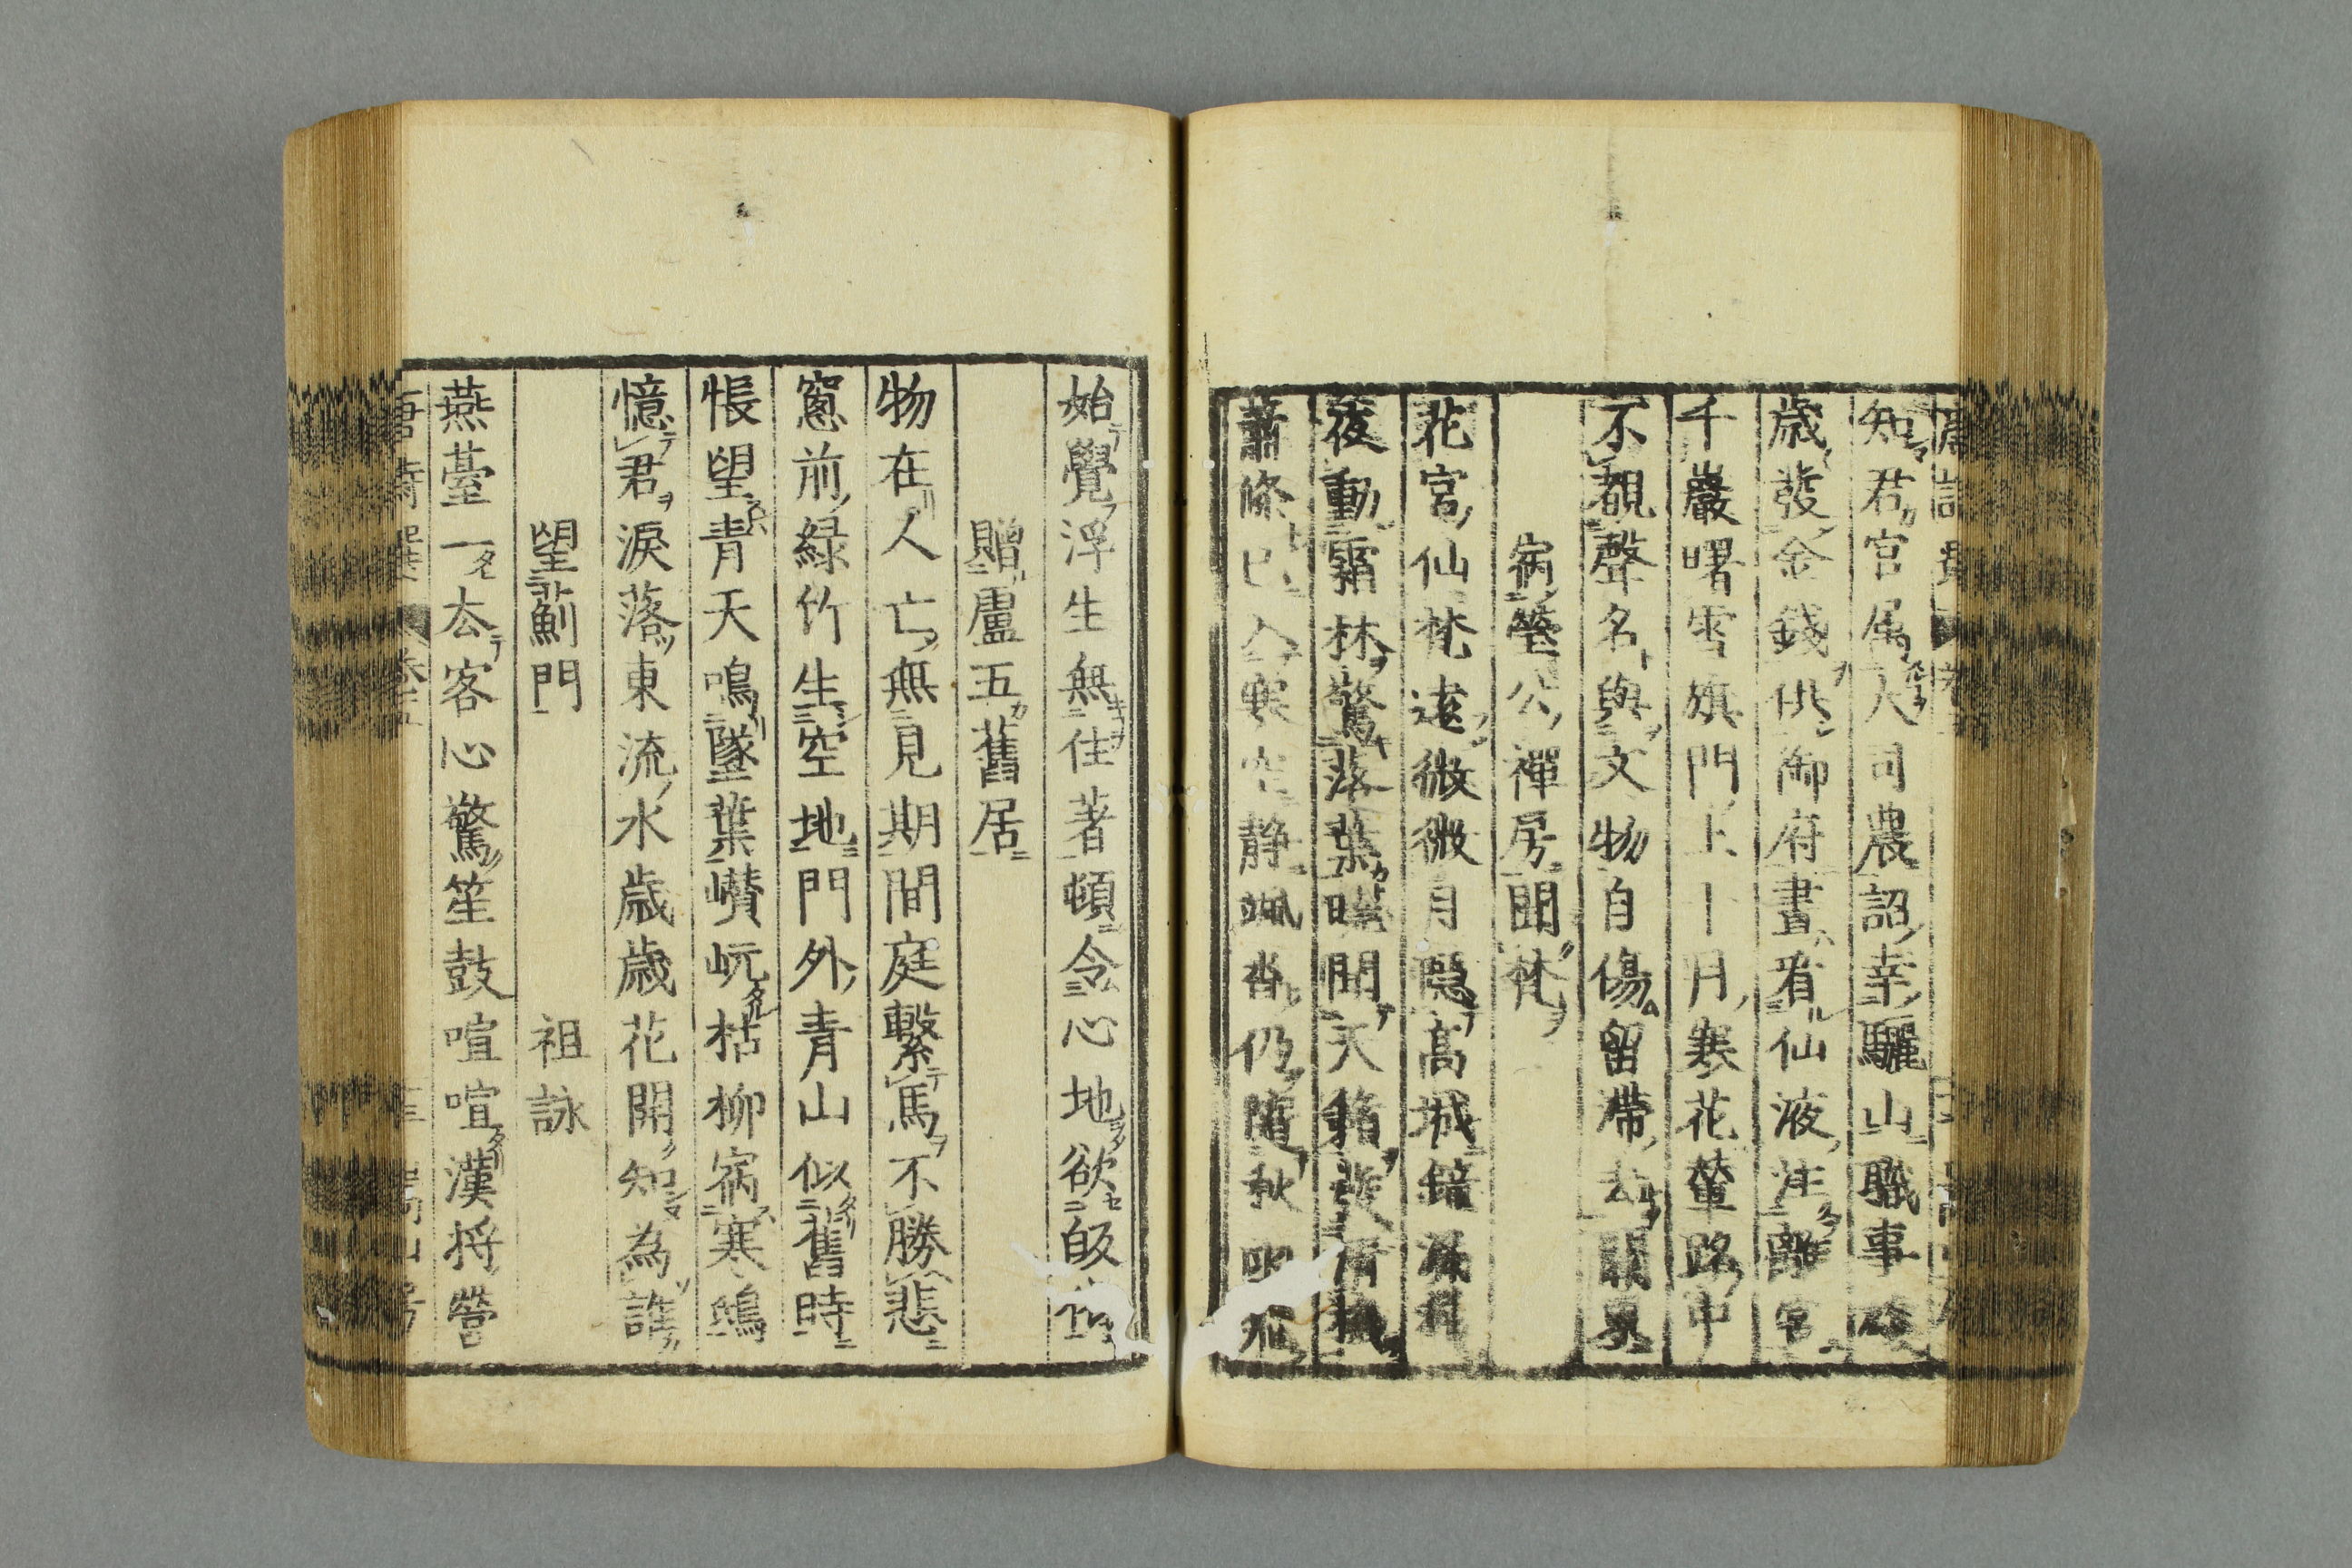 知君官属大司農詔幸驪山職事
歳發金錢供御府晝看仙液注離宮
千巖曙雪旗門上十月寒花輦路中
不覩聲名與文物自傷留滯去關
宿瑩公禪房聞梵
花宮仙梵遠微微月隱高城鐘漏稀
夜動霜林驚落葉曉聞天籟發清機
蕭條已入寒空静颯沓仍隨秋雨
始覺浮生無住著頓令心地欲皈依
贈盧五舊居
物在人亡無見期間庭繋馬不勝悲
窻前緑竹生空地門外青山似舊時
悵望青天鳴墜葉巑岏枯柳宿寒鴟
憶君淚落東流水歳歳花開知為誰
望薊門　祖詠
燕臺一去客心驚笙鼓喧喧漢将營
唐詩選